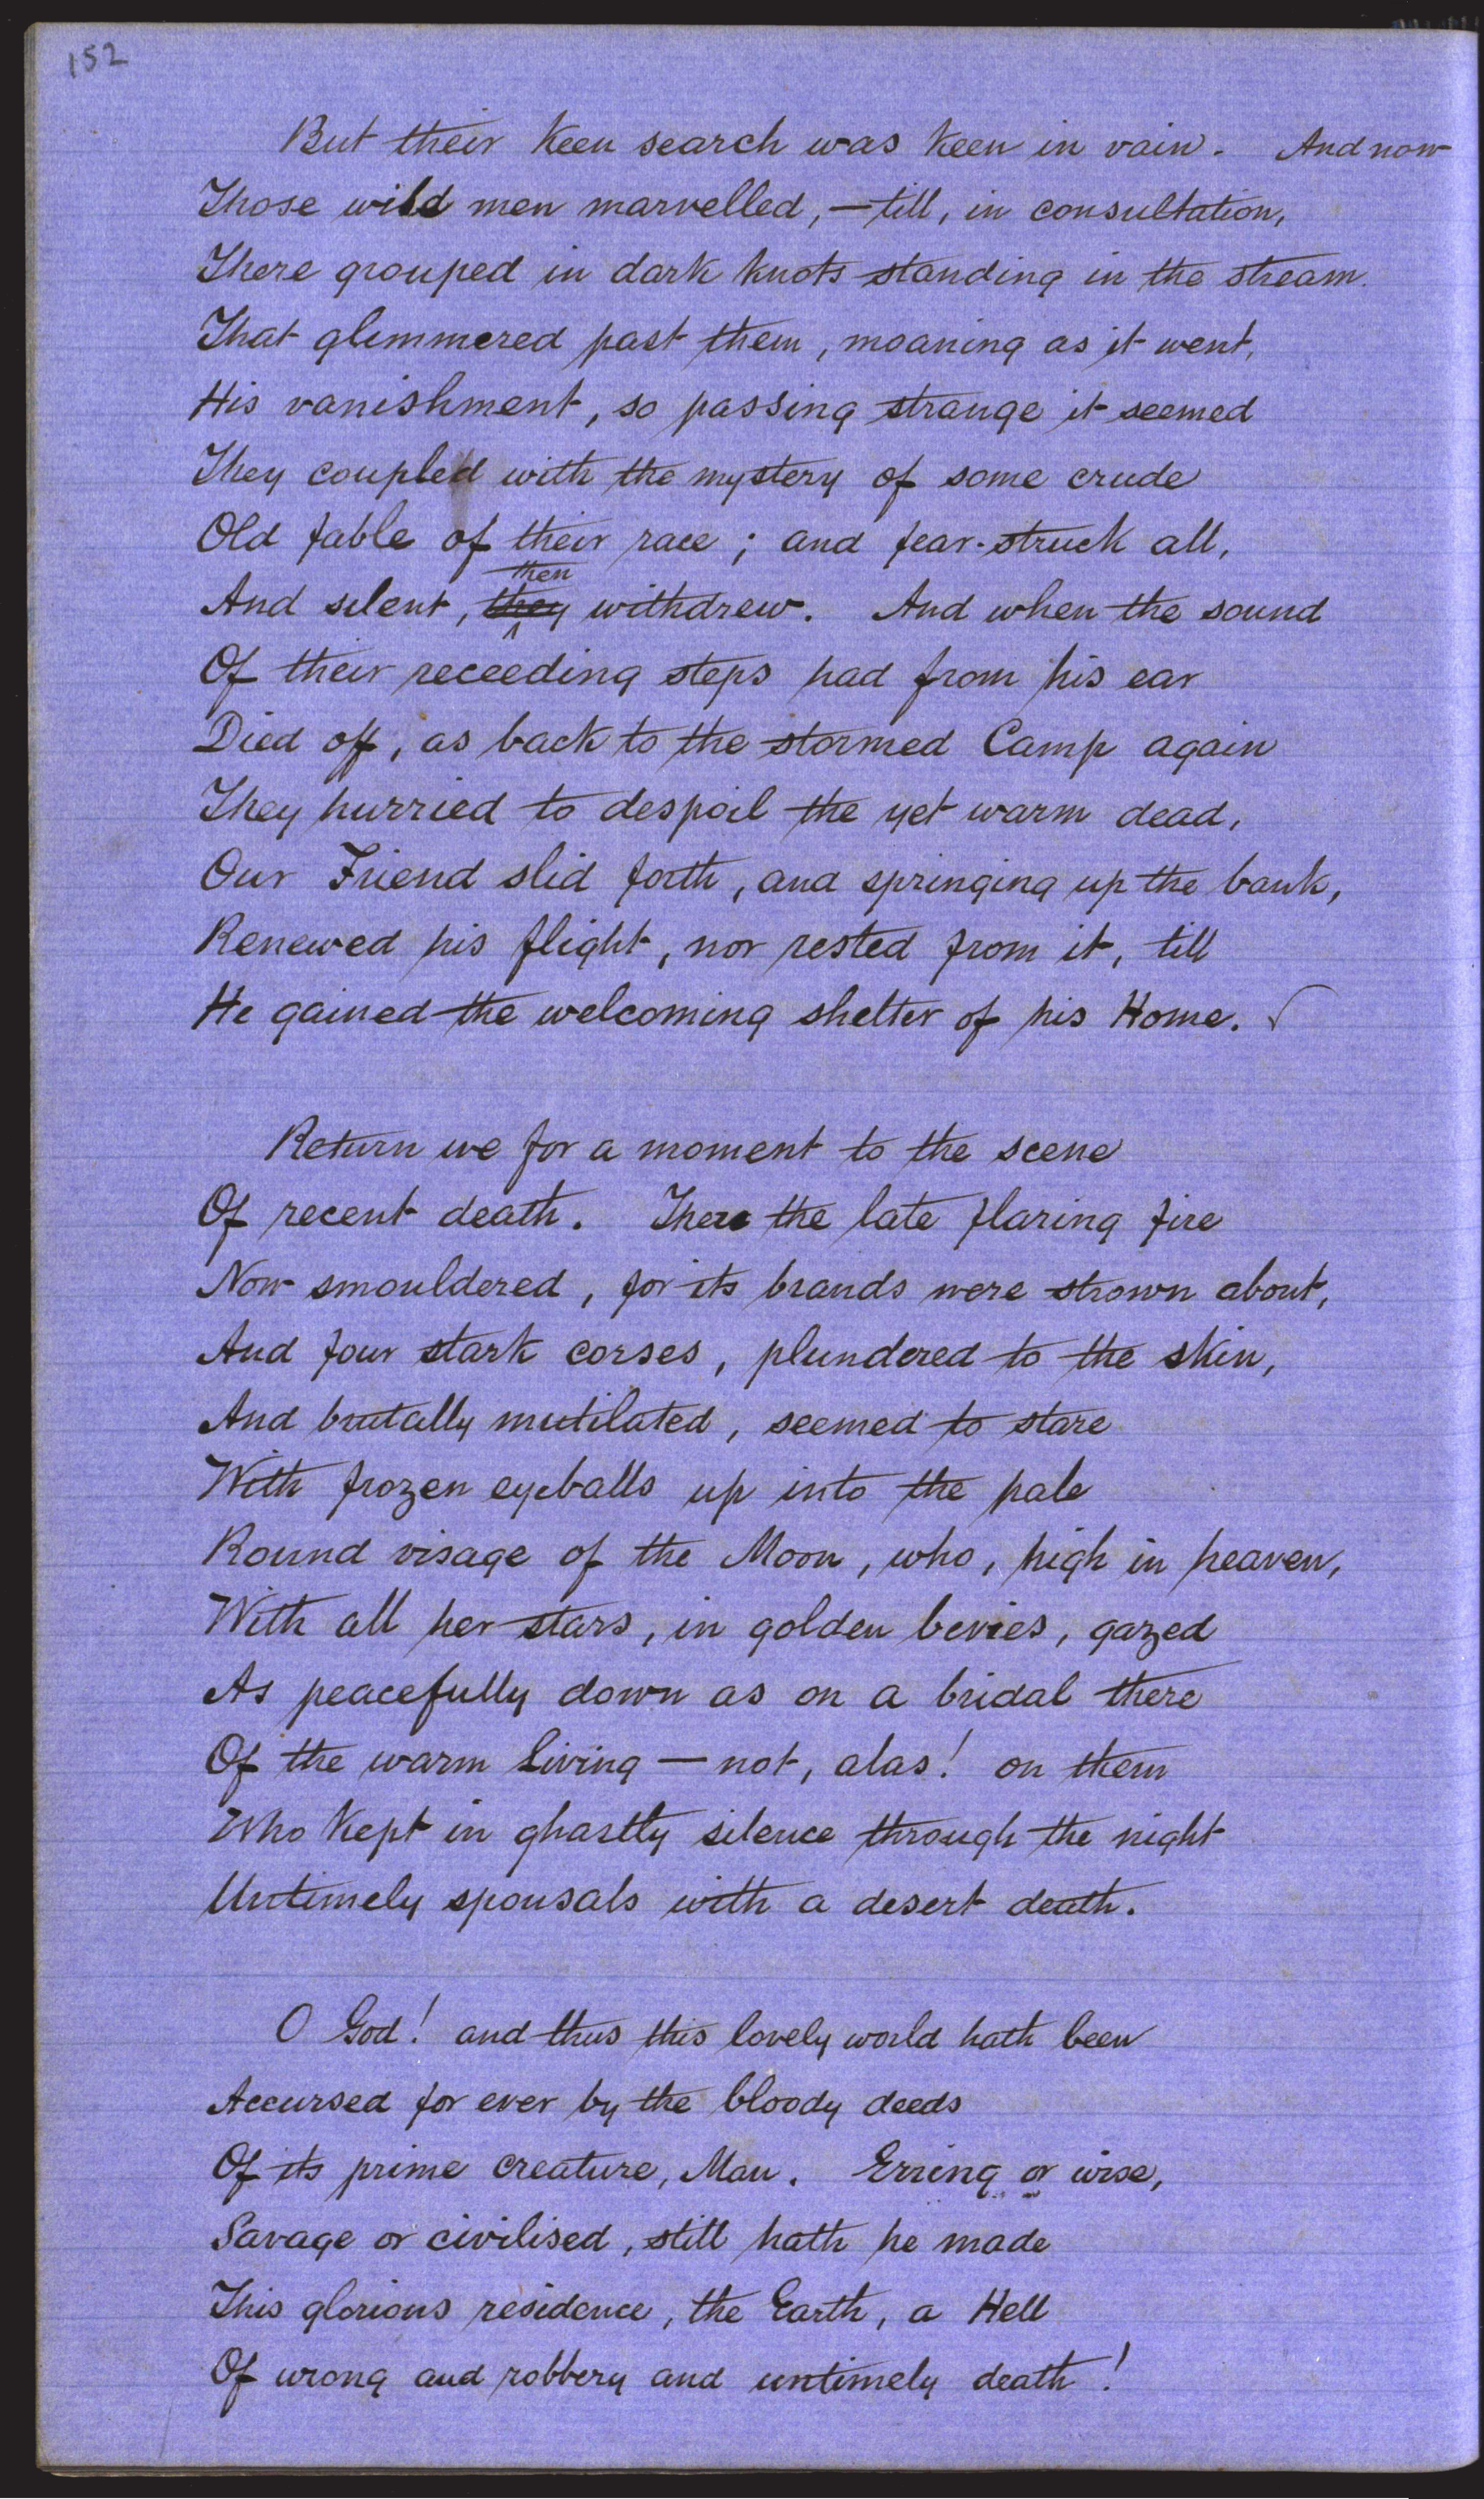 152
But their keen search was keen in vain. And now
Those wild men marvelled, — till, in consultation,
There grouped in dark knots standing in the stream.
That glimmered past them, moaning as it went,
His vanishment, so passing strange it seemed
They coupled with the mystery of some crude
Old fable of their race; and fear-struck all,
then
And silent, they withdrew. And when the sound
Of their receeding steps had from his ear
Died off, as back to the stormed Camp again
They hurried to despoil the yet warm dead,
Our Friend slid forth, and springing up the bank,
Renewed his flight, nor rested from it, till
He gained the welcoming shelter of his Home.
Return we for a moment to the scene
Of recent death. There the late flaring fire
Now smouldered, for its brands were strown about,
And four stark corses, plundered to the skin,
And brutally mutilated, seemed to stare
With frozen eyeballs up into the pale
Round visage of the Moon, who, high in heaven,
With all her stars, in golden bevies, gazed
As peacefully down as on a bridal there
Of the warm Living — not, alas! on them
Who kept in ghastly silence through the night
Untimely spousals with a desert death.
O God! and thus this lovely world hath been
Accursed for ever by the bloody deeds
Of its prime creature, Man. Erring or wise,
Savage or civilised, still hath he made
This glorious residence, the Earth, a Hell
Of wrong and robbery and untimely death!